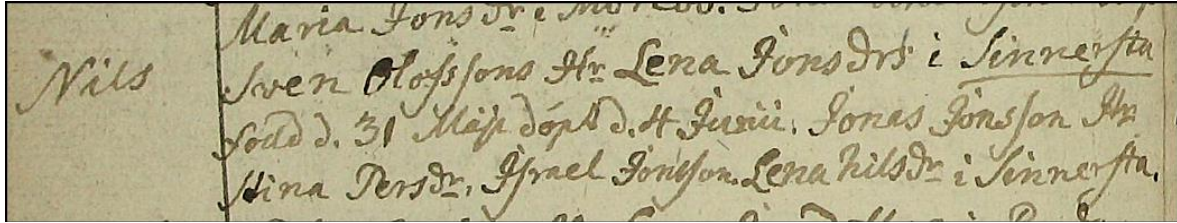 Maria Jonsdr i
Nils
Sven Olofssons Hr Lena Jonsdrs i Sinnersta
född d. 31 Maji döpt d. 4 Junii. Jonas Jönsson Hr
Stina Persdr. Israel Jonsson. Lena Nilsdr i Sinnersta.